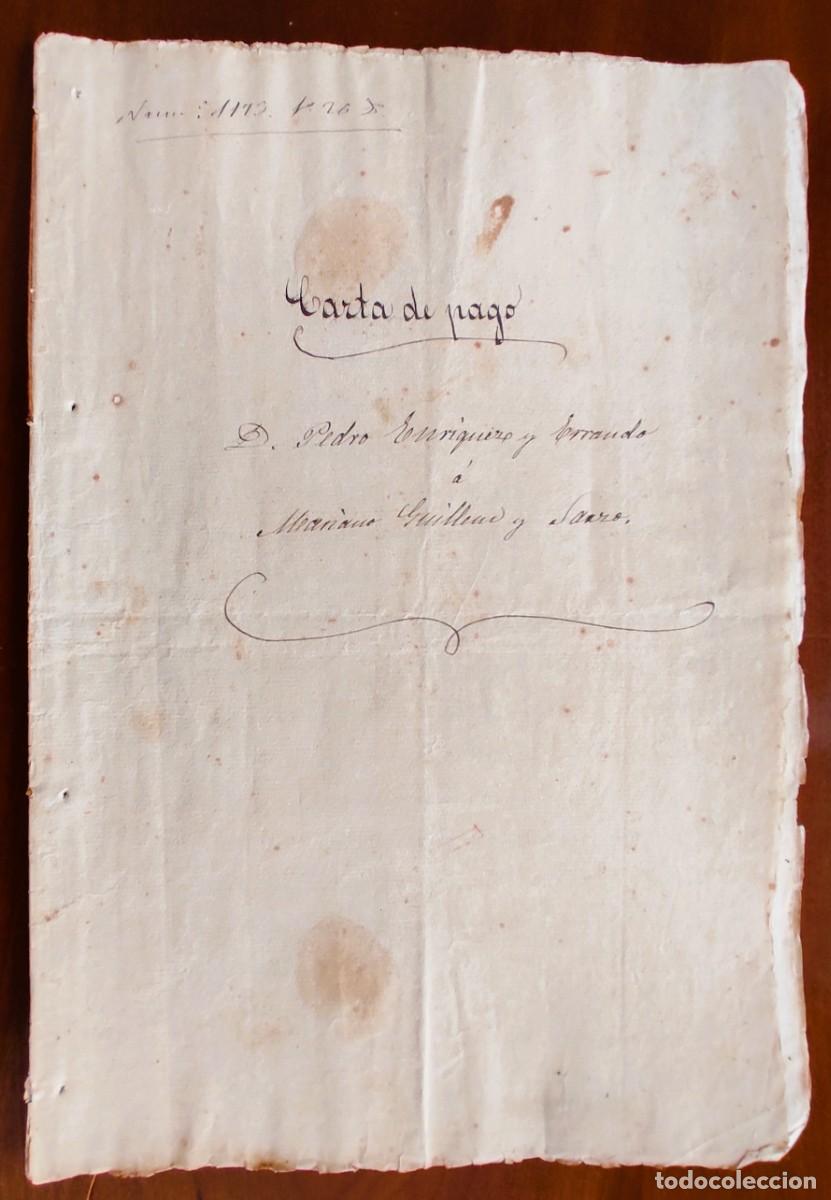 Num: 1193.
Carta de pago
D. Pedro Enriquez y Errando
á
Mariano Guillem y Sanz.
todocoleccion